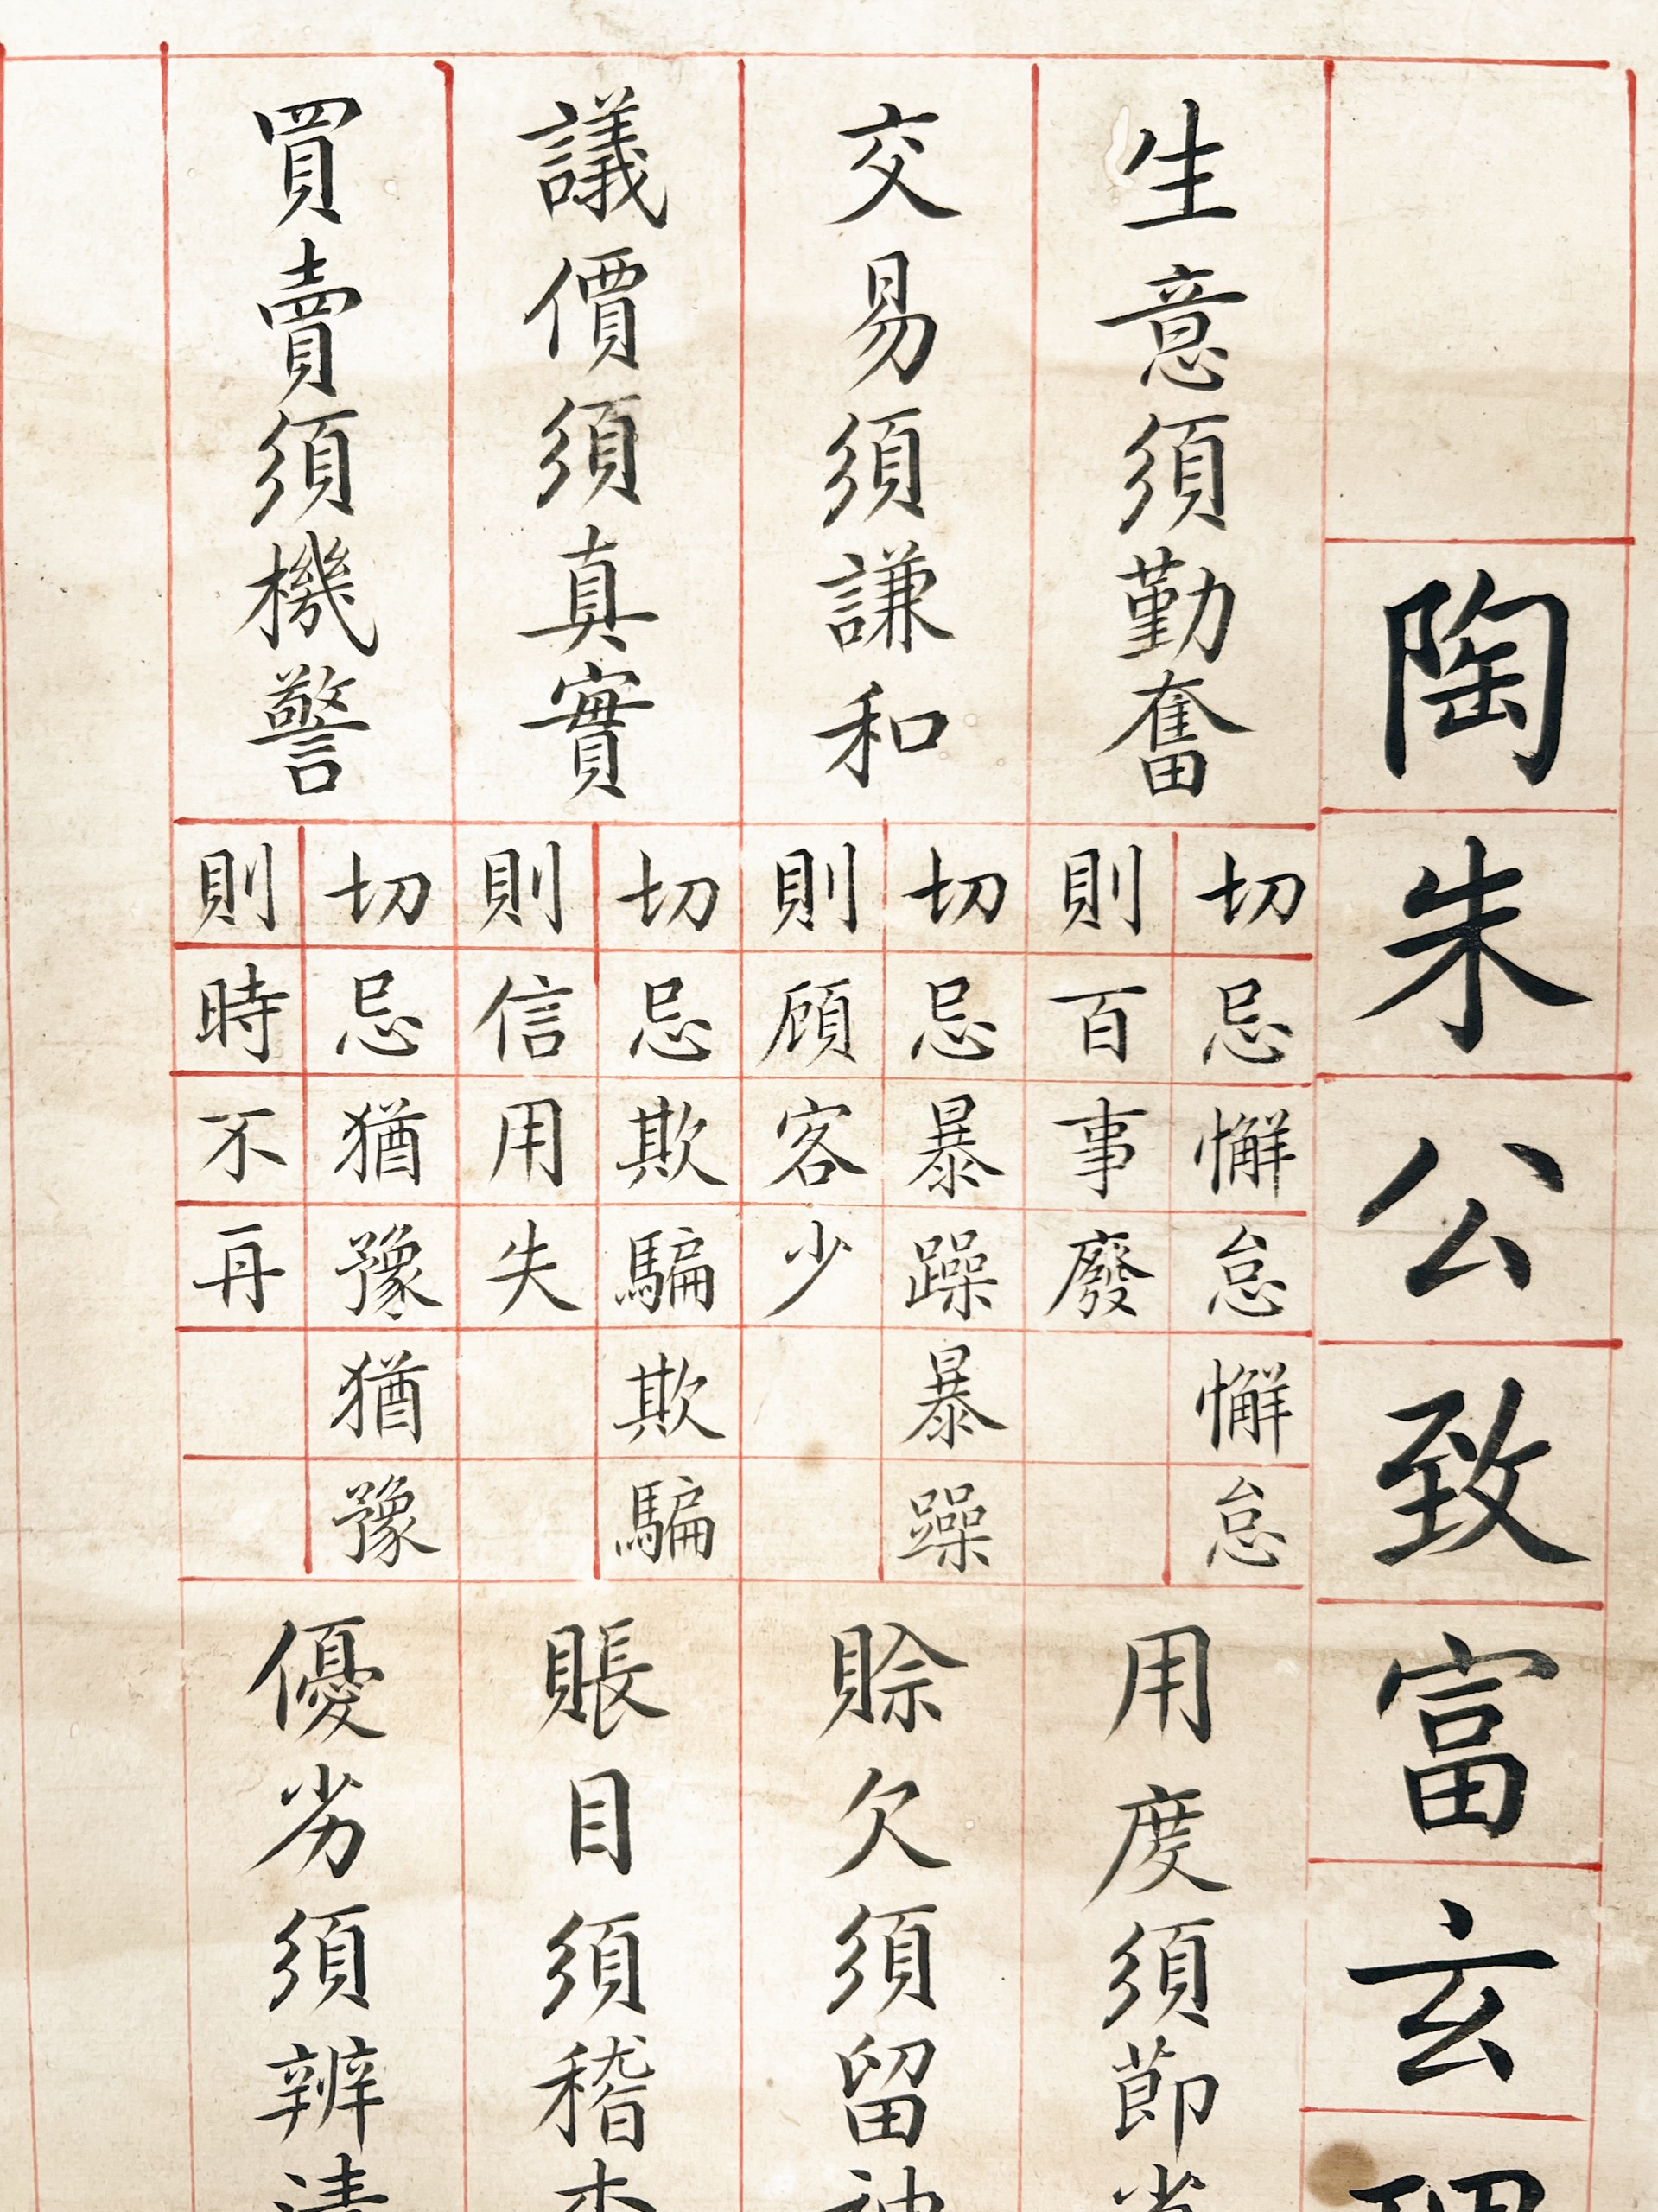 陶朱公致富玄
生意須勤奮
切忌懈怠懈怠
則百事廢
用度須節
交易須謙和
切忌暴躁暴躁
則顧客少
賒欠須留
議價須真實
切忌欺騙欺騙
則信用失
賬目須稽
買賣須機警
切忌猶豫猶豫
則時不再
優劣須辨